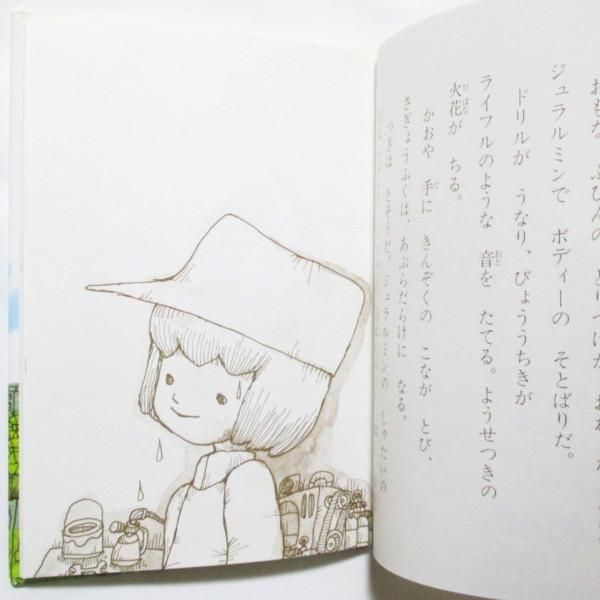 おもな ぶひんの とりつけが おわ
ジュラルミンで ボディーの そとばりだ。
ドリルが うなり、びょううちきが
ライフルのような 音を たてる。ようせつきの
火花が ちる。
かおや 手に きんぞくの こなが とび、
さぎょうふくは、あぶらだらけに なる。
つぎは とそうだ。ジュラルミンの しゃたいの